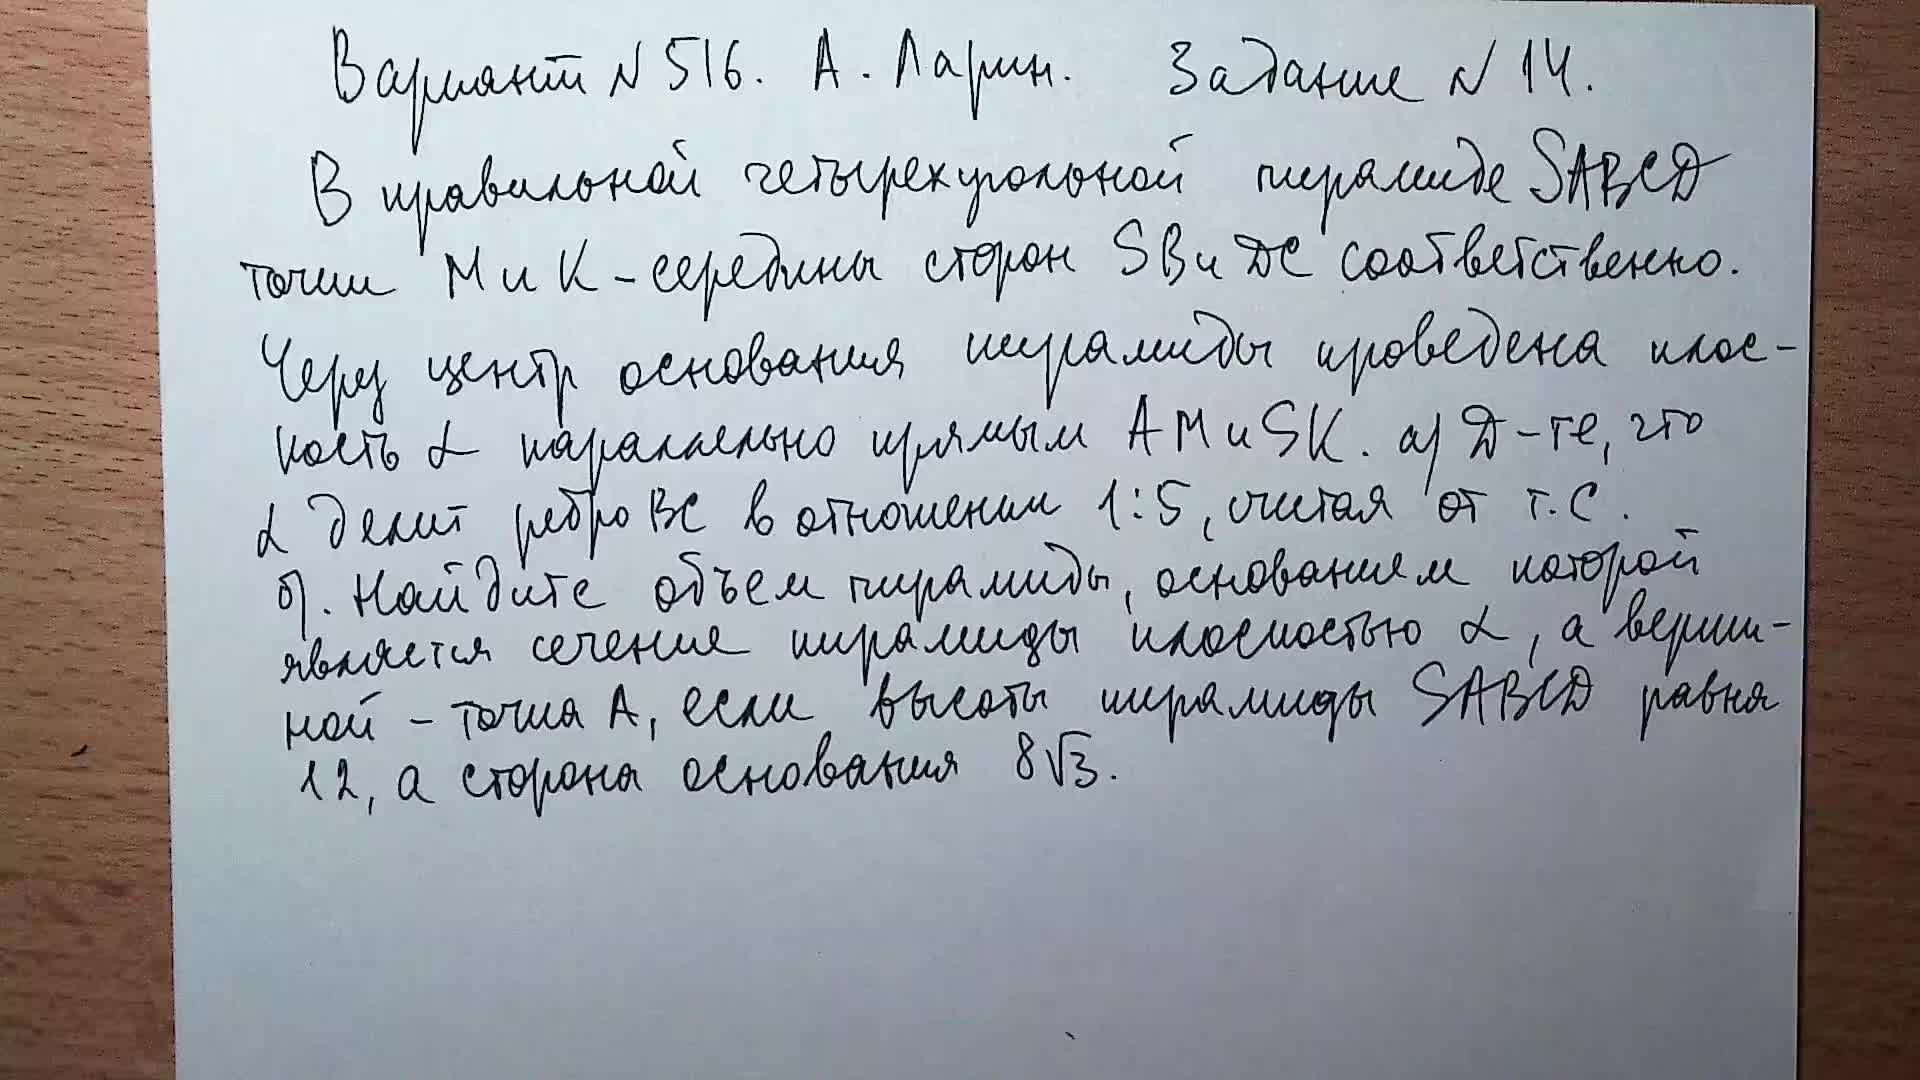 Вариант №516. А. Ларин. Задание №14.
В правильной четырехугольной пирамиде SABCD
точки M и K - середины сторон SB и DC соответственно.
Через центр основания пирамиды проведена плос-
кость α параллельно прямым AM и SK. а) Д-те, что
α делит ребро BC в отношении 1:5, считая от т. C.
б). Найдите объем пирамиды, основанием которой
является сечение пирамиды плоскостью α, а верши-
ной - точка A, если высоты пирамиды SABCD равна
12, а сторона основания 8√3.